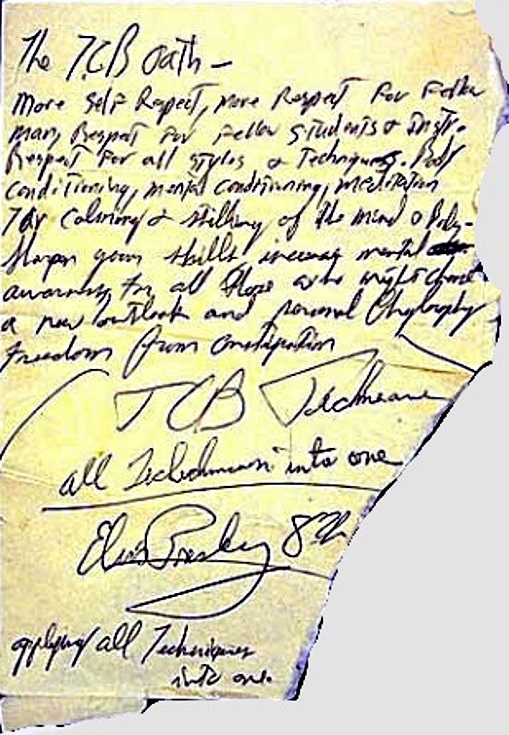 The TCB Oath —
More Self Respect, more Respect For Fellow
man, Respect For Fellow students & Instr.
Respect For all styles & Techniques. Body
conditioning, mental conditioning, meditation
For Calming & stilling of the mind & Body.
Sharpen your skills, increase mental
awareness for all those who might choose
a new outlook and personal Philosophy
Freedom from constipation
TCB Techniques
all Techniques into one
Elvis Presley 8th
applying all Techniques
into one.